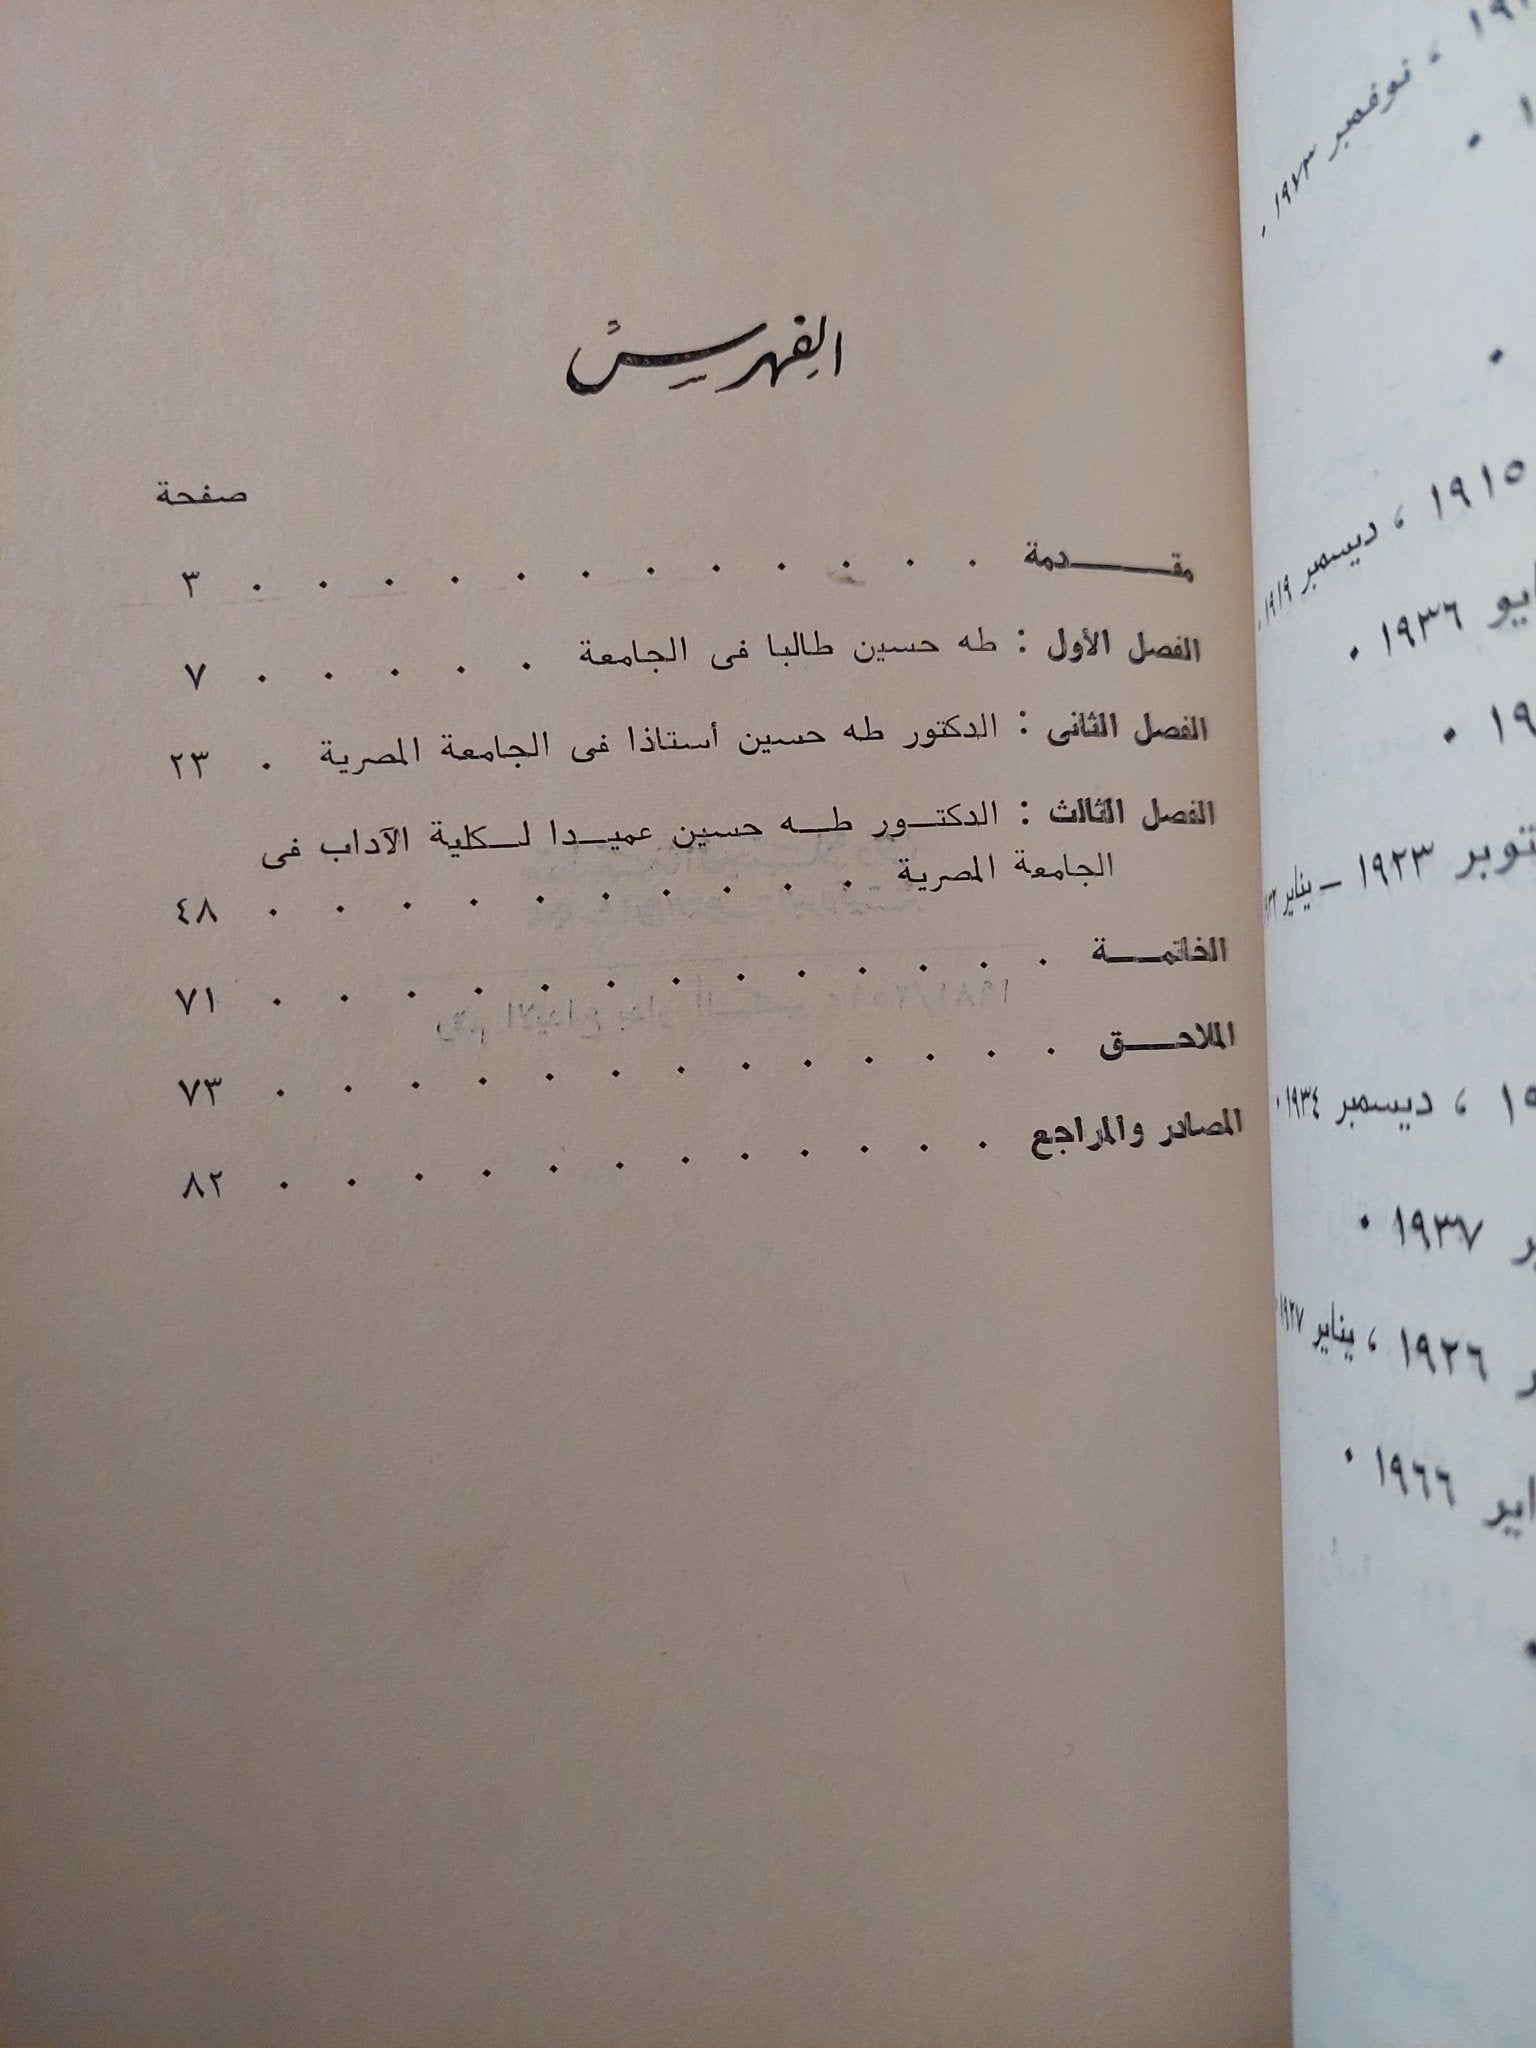 الفهرس
صفحة
مقـــــدمة . . . . . . . . . . . . ٣
الفصل الأول : طه حسين طالبا فى الجامعة . . . . . ٧
الفصل الثانى : الدكتور طه حسين أستاذا فى الجامعة المصرية . ٢٣
الفصل الثالث : الدكتـور طـه حسين عميـدا لـكلية الآداب فى
الجامعة المصرية . . . . . . . . . . ٤٨
الخاتمـــة . . . . . . . . . . . . . ٧١
الملاحـــق . . . . . . . . . . . . . ٧٣
المصادر والمراجع . . . . . . . . . . . . ٨٢
، نوفمبر ١٩٧٣ .
١٩١٥ ، ديسمبر ١٩١٩ .
١٩٣٦ .
١٩٢٣ – يناير
، ديسمبر ١٩٣٤ .
١٩٣٧ .
١٩٢٦ ، يناير ١٩٢٧
١٩٦٦ .